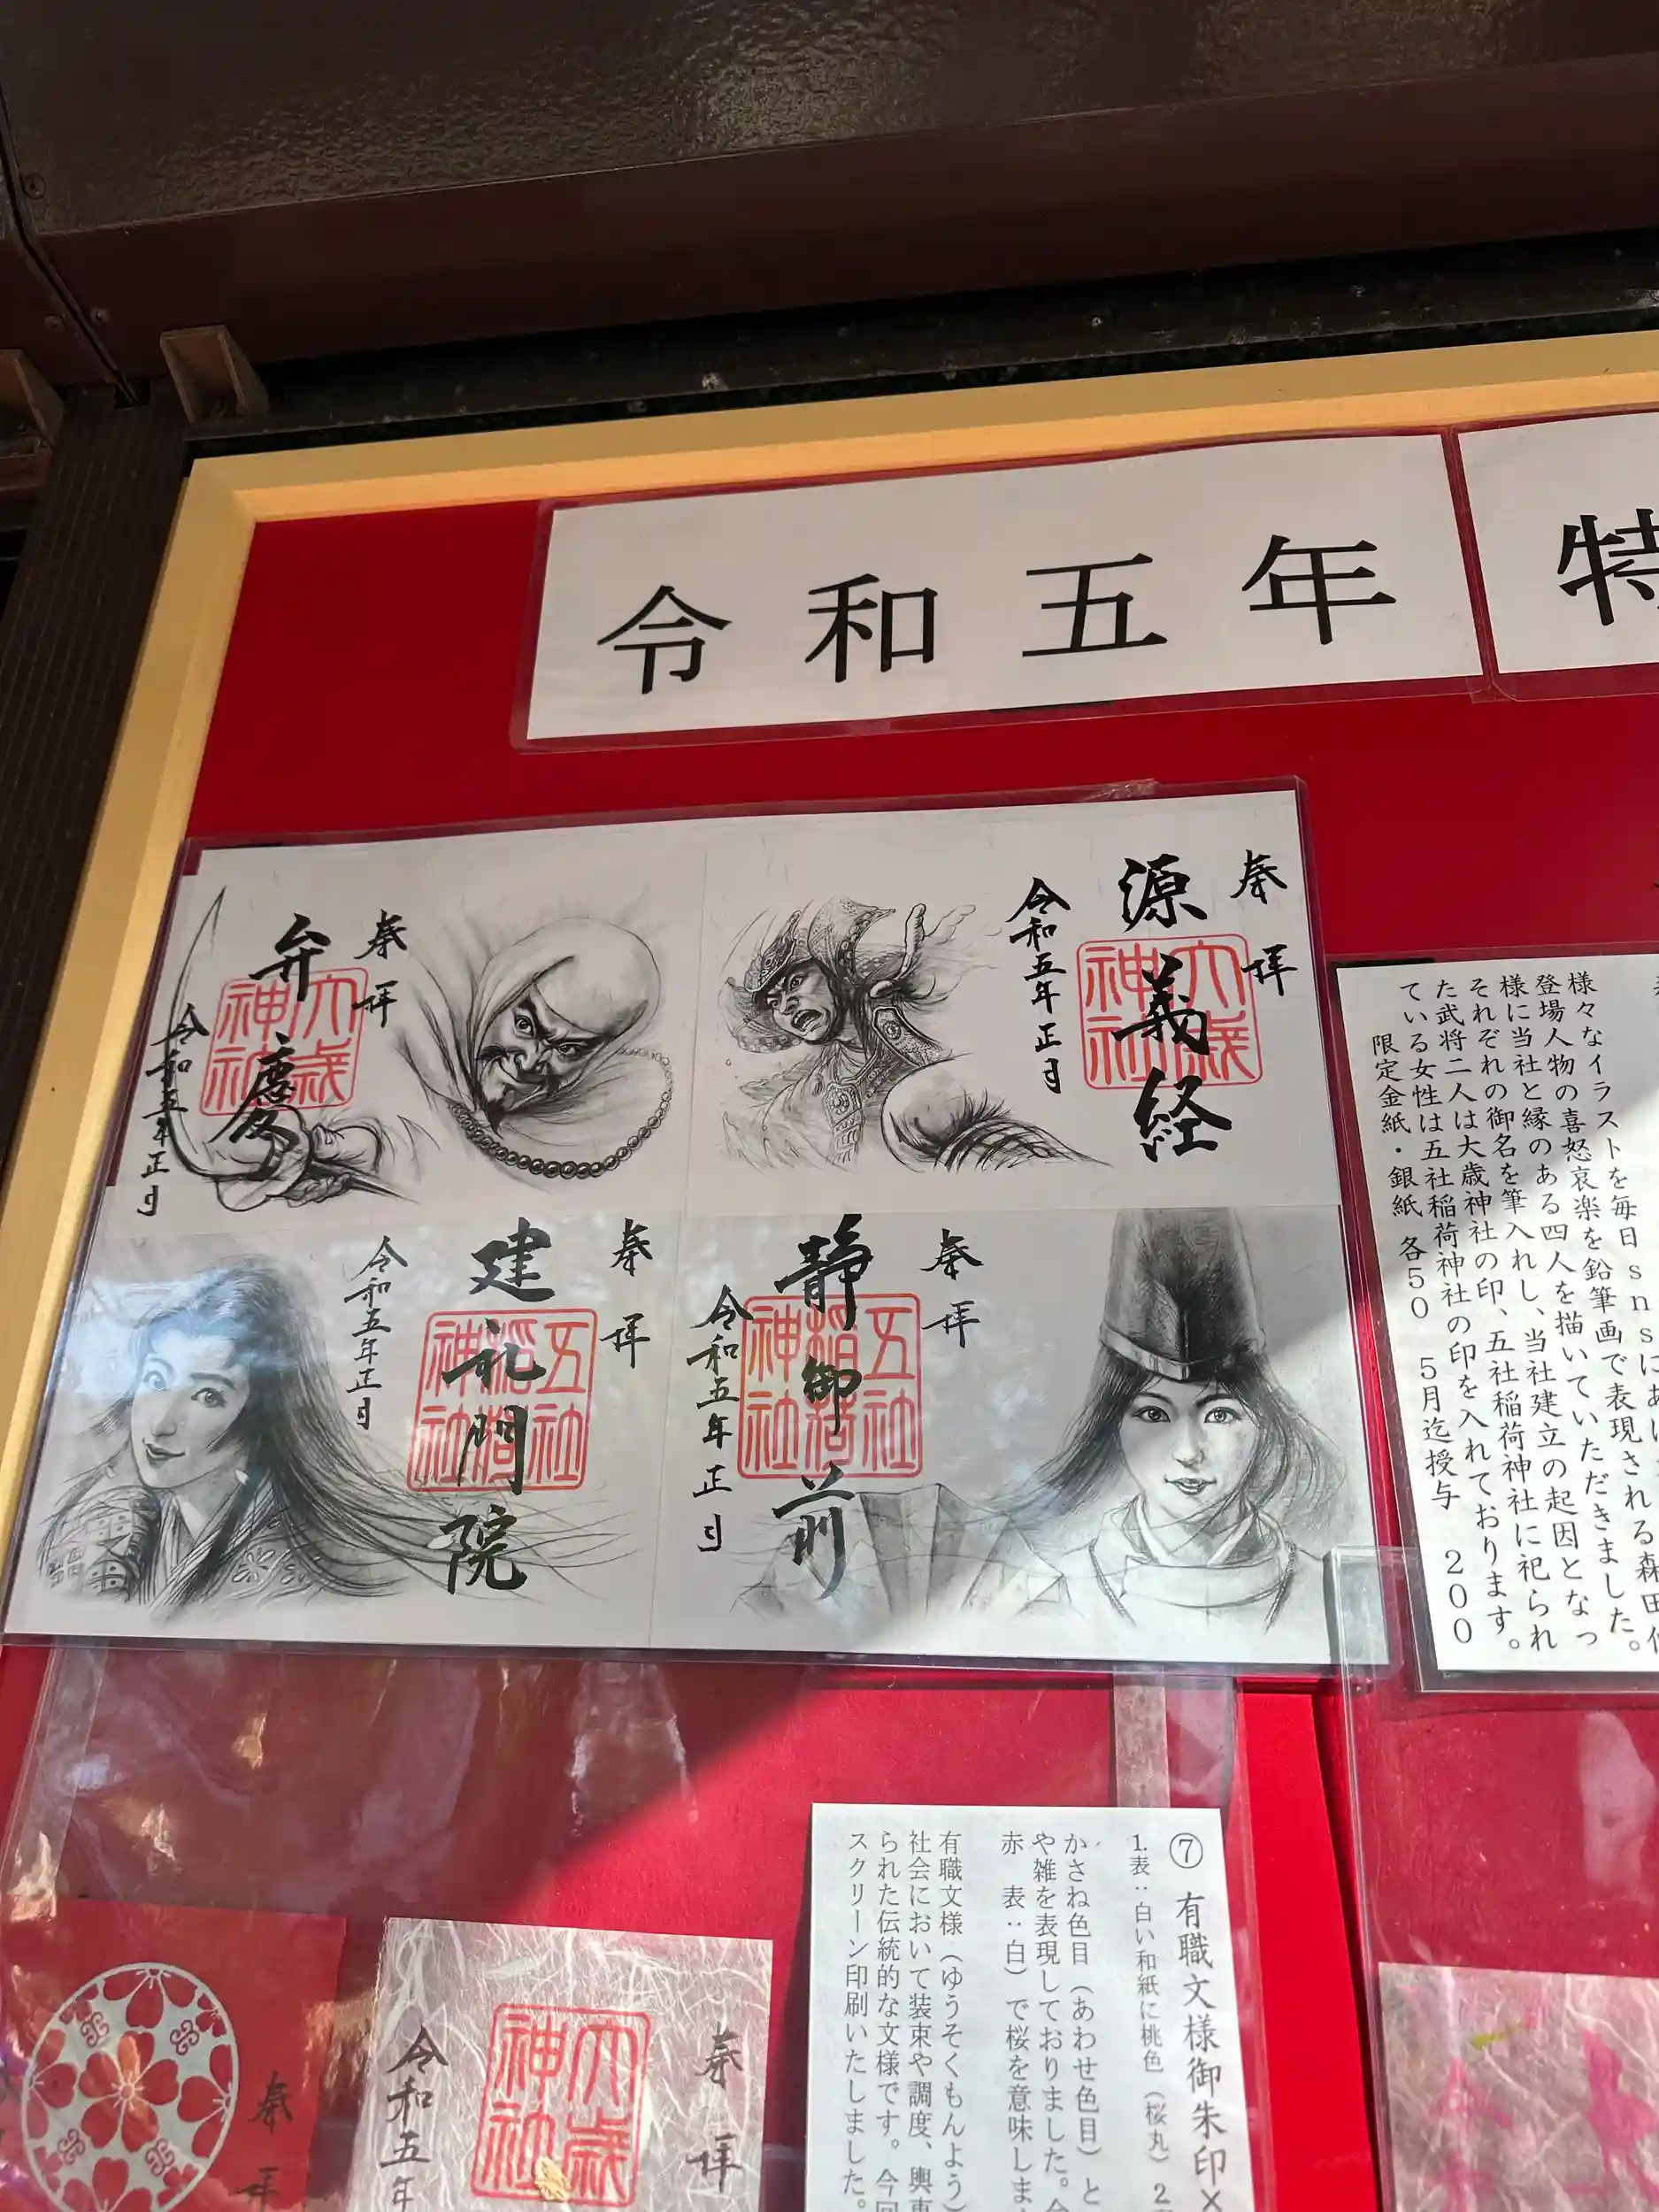 令和五年
特
奉拝
源義経
大歳神社
令和五年正月
奉拝
弁慶
大歳神社
令和五年正月
奉拝
静御前
五社稲荷神社
令和五年正月
奉拝
建礼門院
五社稲荷神社
令和五年正月
様々なイラストを毎日snsにあ
登場人物の喜怒哀楽を鉛筆画で表現される森田
様に当社と縁のある四人を描いていただきました。
それぞれの御名を筆入れし、当社建立の起因となっ
た武将二人は大歳神社の印、五社稲荷神社に祀られ
ている女性は五社稲荷神社の印を入れております。
限定金紙・銀紙 各50 5月迄授与 200
⑦ 有職文様御朱印×
1.表：白い和紙に桃色（桜丸） 2
かさね色目（あわせ色目）と
や雑を表現しておりました。
赤 表：白）で桜を意味しま
有職文様（ゆうそくもんよう）
社会において装束や調度、輿車
られた伝統的な文様です。今回
スクリーン印刷いたしました。
奉拝
大歳神社
令和五年
奉拝